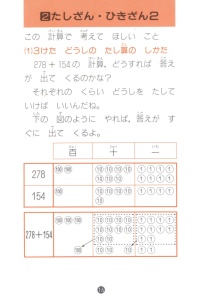 2たしざん・ひきざん2
この 計算で 考えて ほしい こと
(1)3けた どうしの たし算の しかた
278+154の 計算。どうすれば 答え
が 出て くるのかな?
それぞれの くらい どうしを たして
いけば いいんだね。
下の 図のように やれば、答えが す
ぐに 出て くるよ。
百 十 一
278 100 100 10 10 10 10 10 10 10 1 1 1 1 1 1 1 1
154 100 10 10 10 10 10 1 1 1 1
278+154